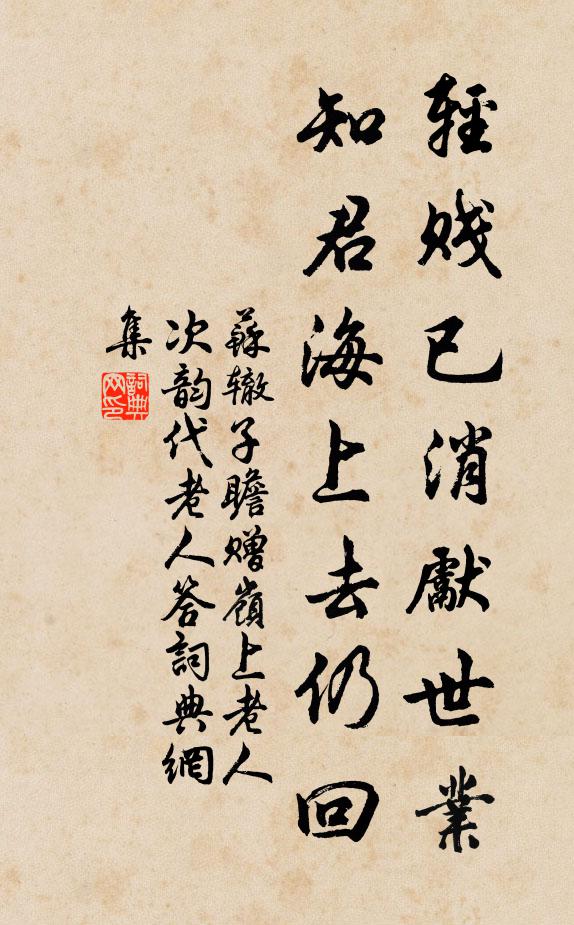 輕賤已消獻世業
知君海上去仍回
蘇轍子瞻贈嶺上老人
次韵代老人答詞典網
集
詞典網印